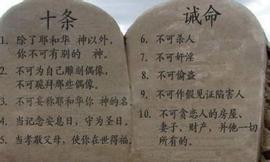 十条
1. 除了耶和华 神以外，
你不可有别的 神。
2. 不可为自己雕刻偶像，
不可跪拜那些偶像。
3. 不可妄称耶和华你 神的名
4. 当记念安息日，守为圣日。
5. 当孝敬父母，使你在世得福。
诫命
6. 不可杀人
7. 不可奸淫
8. 不可偷盗
9. 不可作假见证陷害人
10. 不可贪恋人的房屋、
妻子、财产，并他一切
所有的。